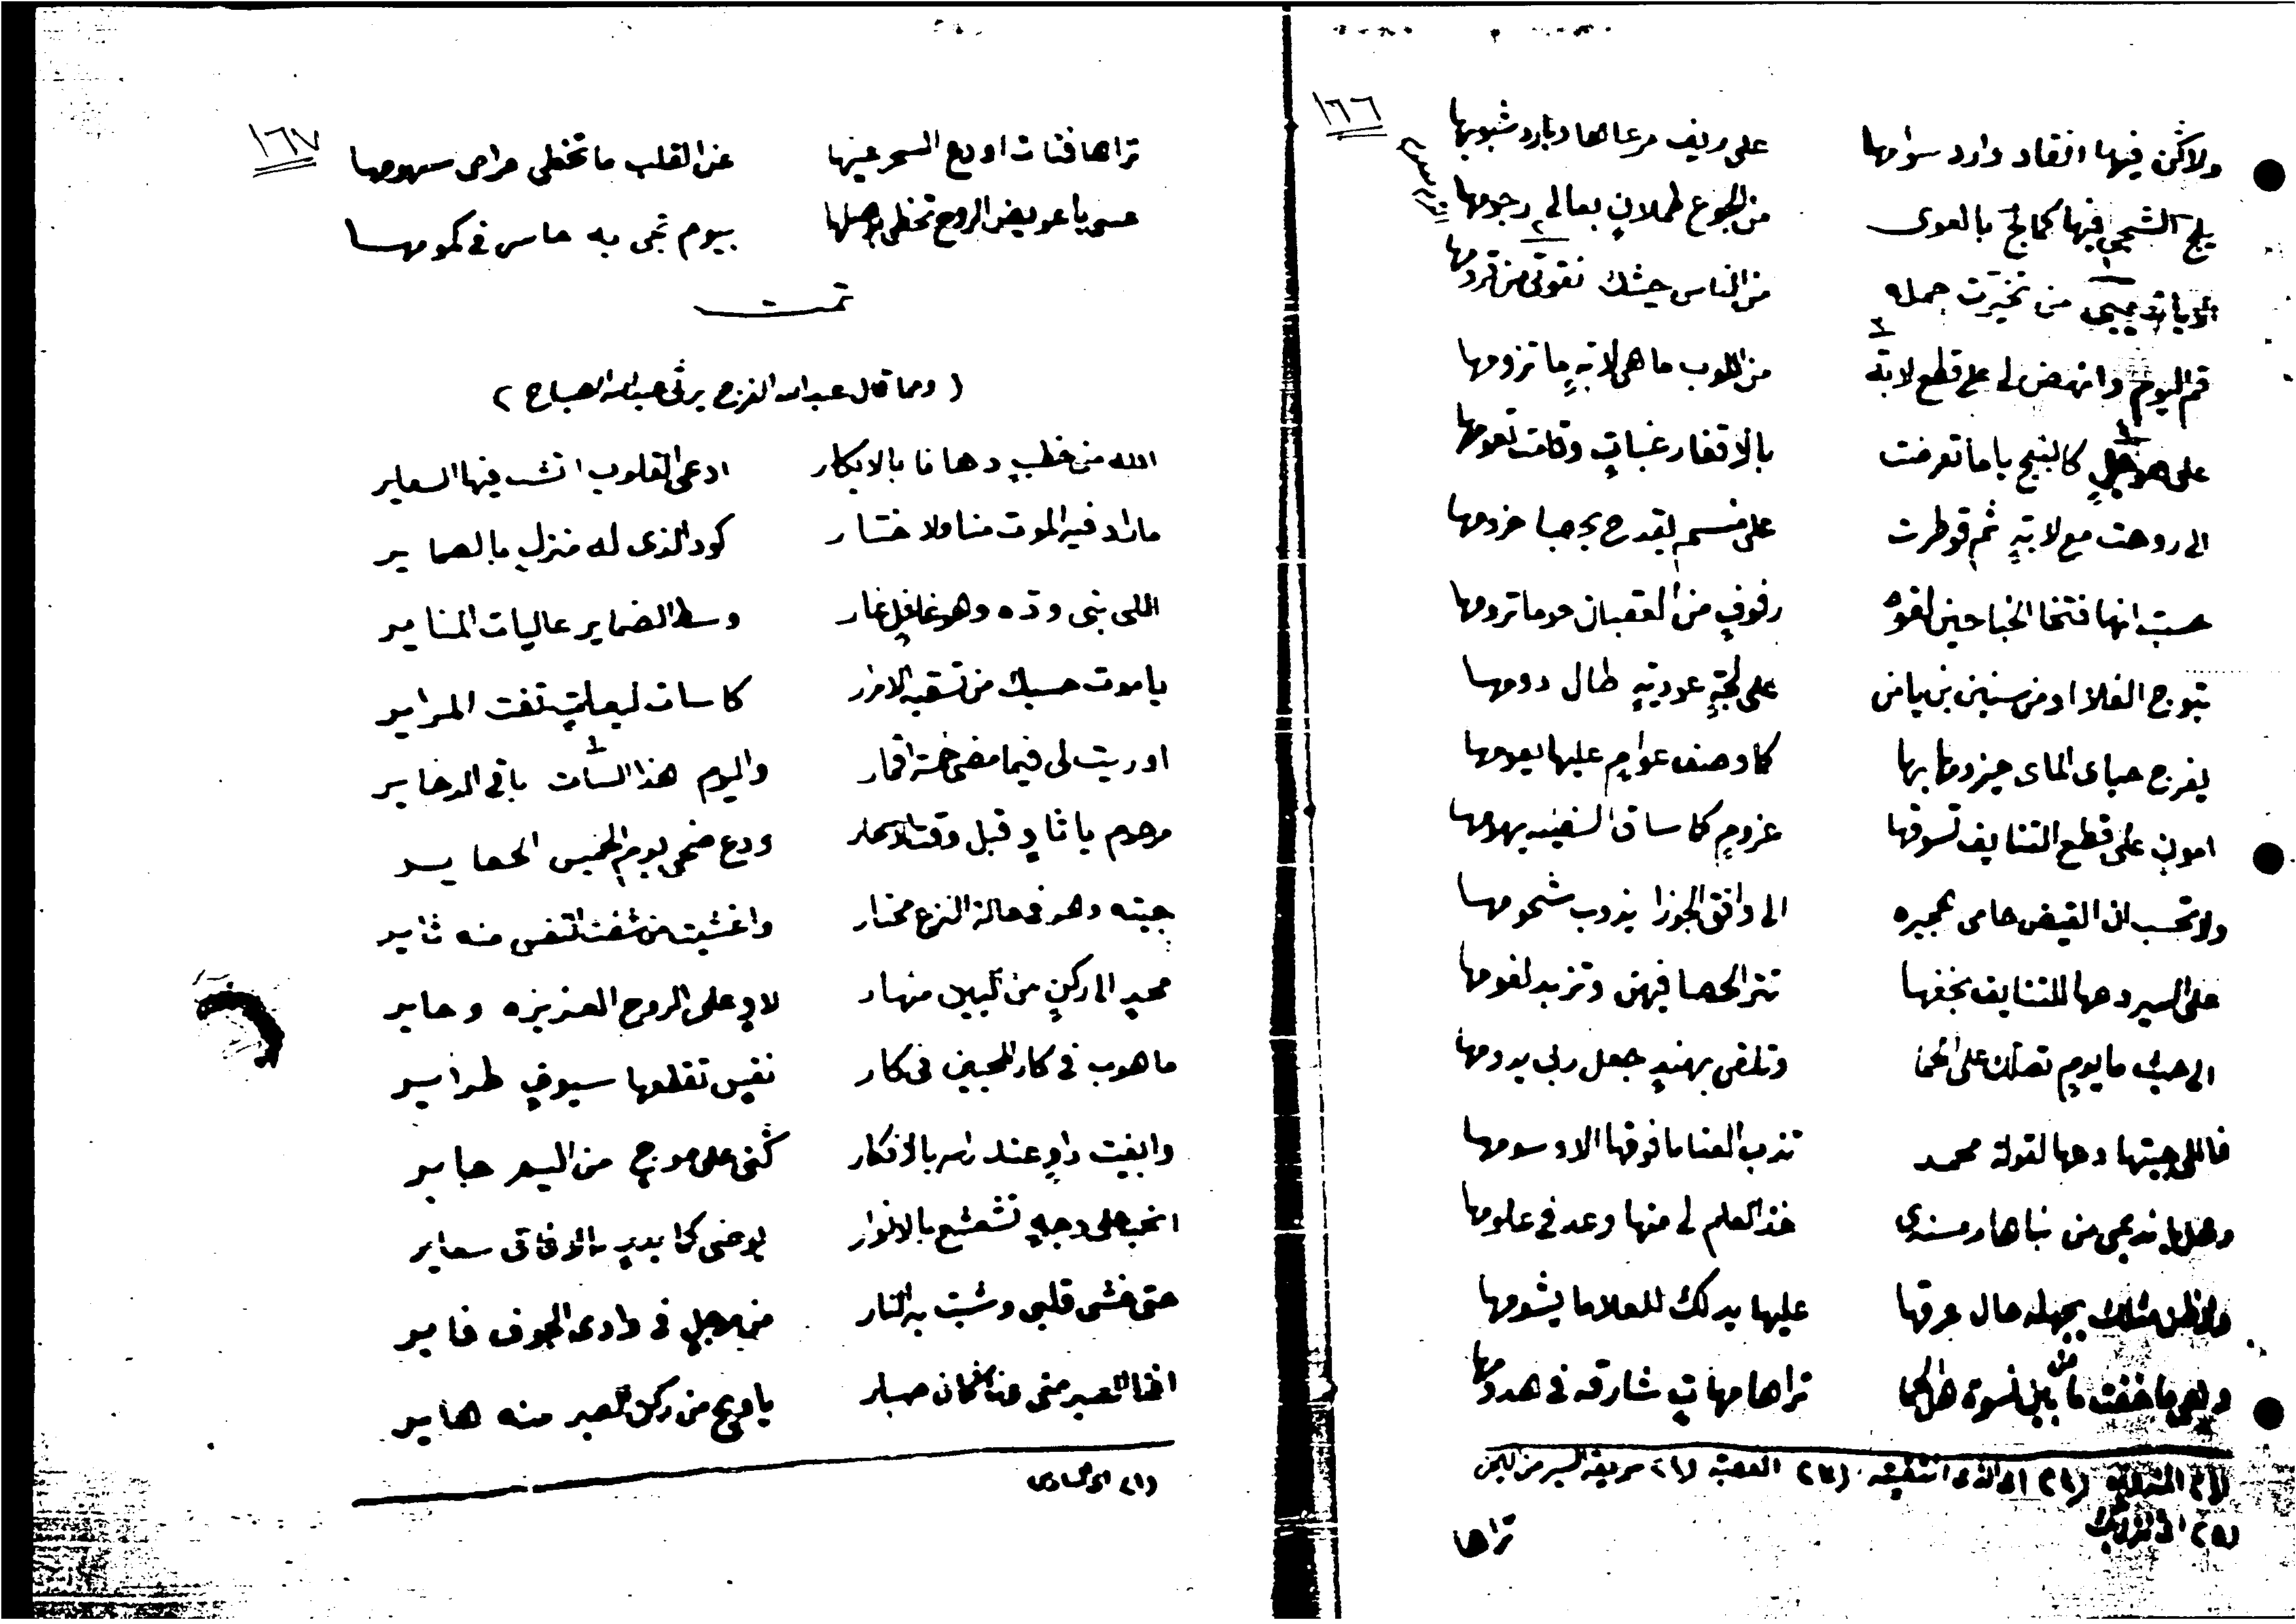 ١٦٦
ولاكن فيها انقاد وارد سوامها على مريف مرعاها وبارد شبوبها
يلج الشجي فيها كما لج بالعوى من الجوع طملانٍ بعالي رجومها
من تخيرت حمله من الناس حيثك نقوتي من قرومها
قم اليوم وانهض لي على قطع لابة من اللوب ما هي لابةٍ ما تزومها
على كالنبج ياما تعرضت بالاقفار غباتٍ وقامت تعومها
الى روحت مع لابةٍ ثم قوطرت على منسم يقدح بحصبا خرومها
حسبت انها فتخا الجناحين لفوه رفوفٍ من العقبان حوما ترومها
تبوج الفلا او من سنين بن يامن على لجةٍ عوديةٍ طال دومها
يفرج حباى الماى حيزومها بها كما وصف عوامٍ عليها يعومها
امونٍ على قطع التنايف تسوقها عزومٍ كما ساق السفينه يهومها
ولا تحسب ان القيض حامى هجيره الى وافق الجوزا يذوب شحومها
على السير دحها للتنايف بخفها تنثر الحصا فيهن وتزبد لغومها
الى حيث ما يومٍ تصلك على الحما وتلقى بهندٍ جعل ربي يدومها
فاللي جيتها دحها لقولة محمد تذب العنا ما فوقها الا وسومها
وهل يا نديمي من نباها ومسندى خذ العلم لي منها وعد في علومها
ولا ظن مثلك يجهله حال عرقها عليها يدلك للعلا ما يشومها
وهي ما خفت ما بين نسوة هل الحما تراها مهاتٍ شارقه في هدومها
الى الذى انتقيته (٣) العصبة سريعة السير من الابل
تراها
١٦٧
تراها فتات اودع السحر عينها عن القلب ما تخطى مرامى سهومها
عسى يا عويض الروح تحظى بوصلها بيوم تجى به حاس في كمومها
تمت
(ومما قال عبدالله الفرج يرثى عبدالله الصباح)
الله من خطبٍ دهانا بالابكار ادعى القلوب انشب فيها السعاير
ماراد فيه الموت منا ولا ختار كود الذى له منزلٍ بالضماير
اللى بنى وده وهو غافلٍ غار وسط الضماير عاليات المناير
يا موت حسبك من تسقيه الامرار كاسات ليعاتٍ تفت المراير
اوريت لى فيما مضى خمسة اقمار واليوم هذا السات باقى الدخاير
مرحوم يا ثاوٍ قبل وقت الاسحار ودع ضحى يوم الخميس الحضاير
جيته وهو في حالة النزع محتار واغشيت من شفت النفس منه ثاير
محدٍ الى ركنٍ من البين منهار لاوٍ على الروح العزيزه وحاير
ما هوب في كار المحبين في كار نفسٍ تقطعها سيوفٍ طراير
وابقيت داوٍ عند راسه بالافكار كنى على موجٍ من اليم حاير
انحب على وجهٍ تشعشع بالانوار يوضى كما بدرٍ بالافاق ساير
حتى خشى قلبي وشبت به النار من مرجلٍ في وادى الجوف فاير
انحا الصبر منى عنا كان صبار يا ويح من ركن الصبر منه هاير
(١) السادس